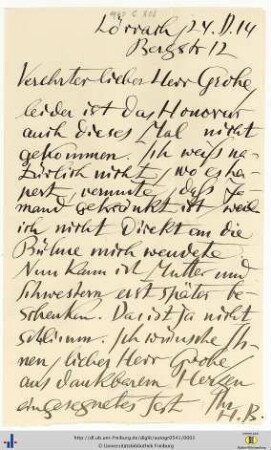 Lörrach, 24. D. 14
Bergstr 12
Verehrter lieber Herr Grohe,
leider ist das Honorar
auch dieses Mal nicht
gekommen. Ich weiß na-
türlich nicht, wo es ha-
pert, vermute, daß je-
mand gekränkt ist, weil
ich nicht direkt an die
Bühne mich wendete.
Nun kann ich Mutter und
Schwestern erst später be-
schenken. Das ist ja nicht
schlimm. Ich wünsche Ih-
nen, lieber Herr Grohe
aus dankbarem Herzen
ein gesegnetes Fest
Ihr
H. B.
http://dl.ub.uni-freiburg.de/diglit/autogr0541/0003
© Universitätsbibliothek Freiburg